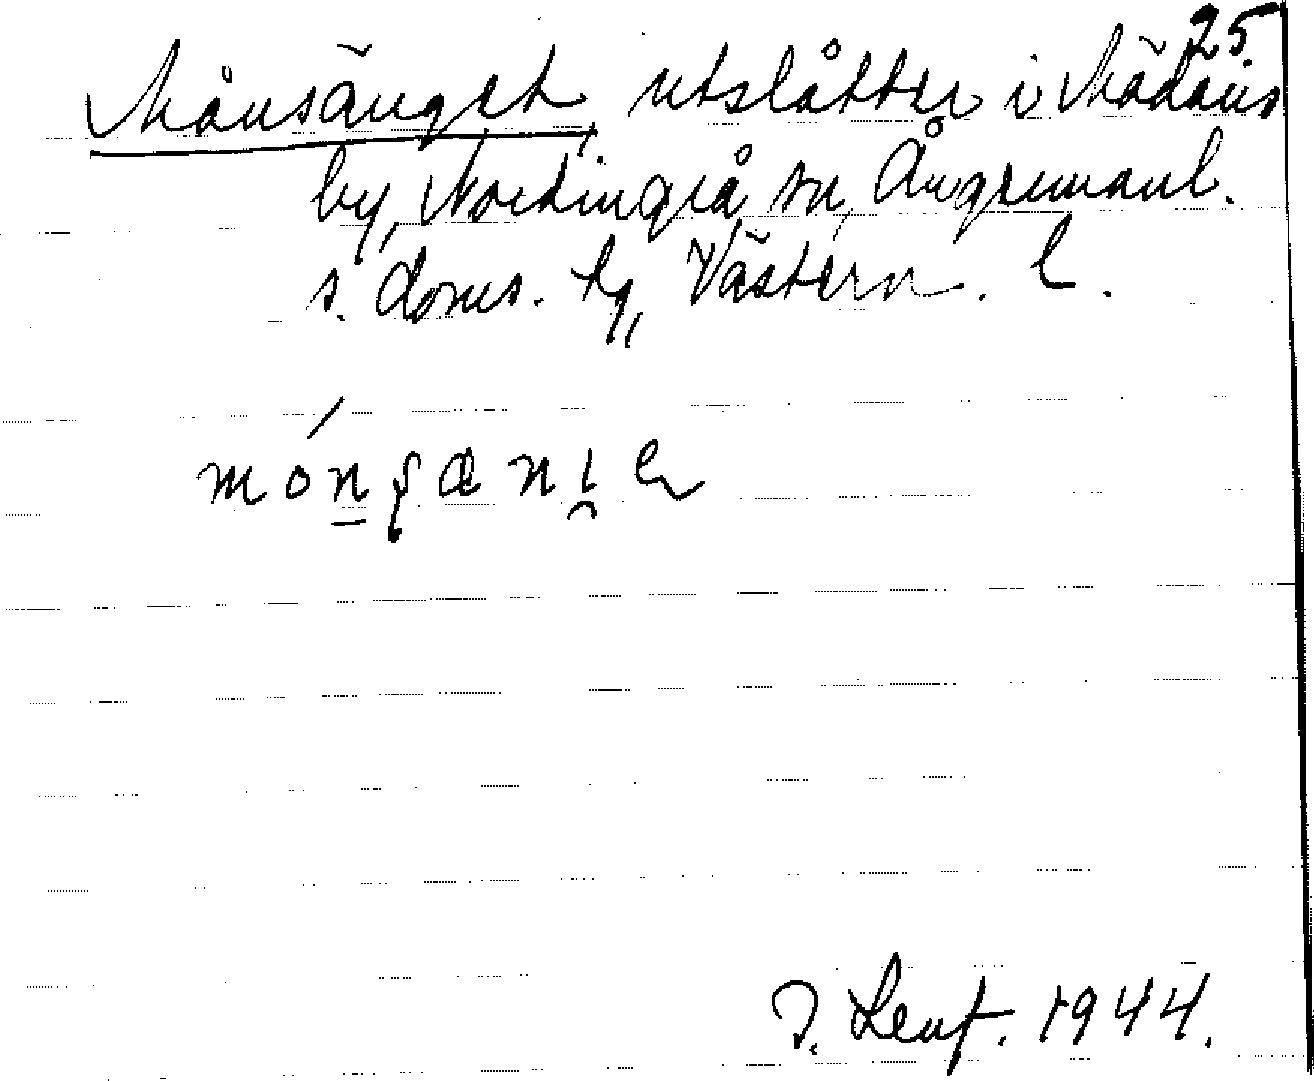 25
Månsänget, utslåtter i Mädans
by, Nordingrå sn, Ångermanl.
s. doms. tg, Västern. l.
J. Leuf. 1944.